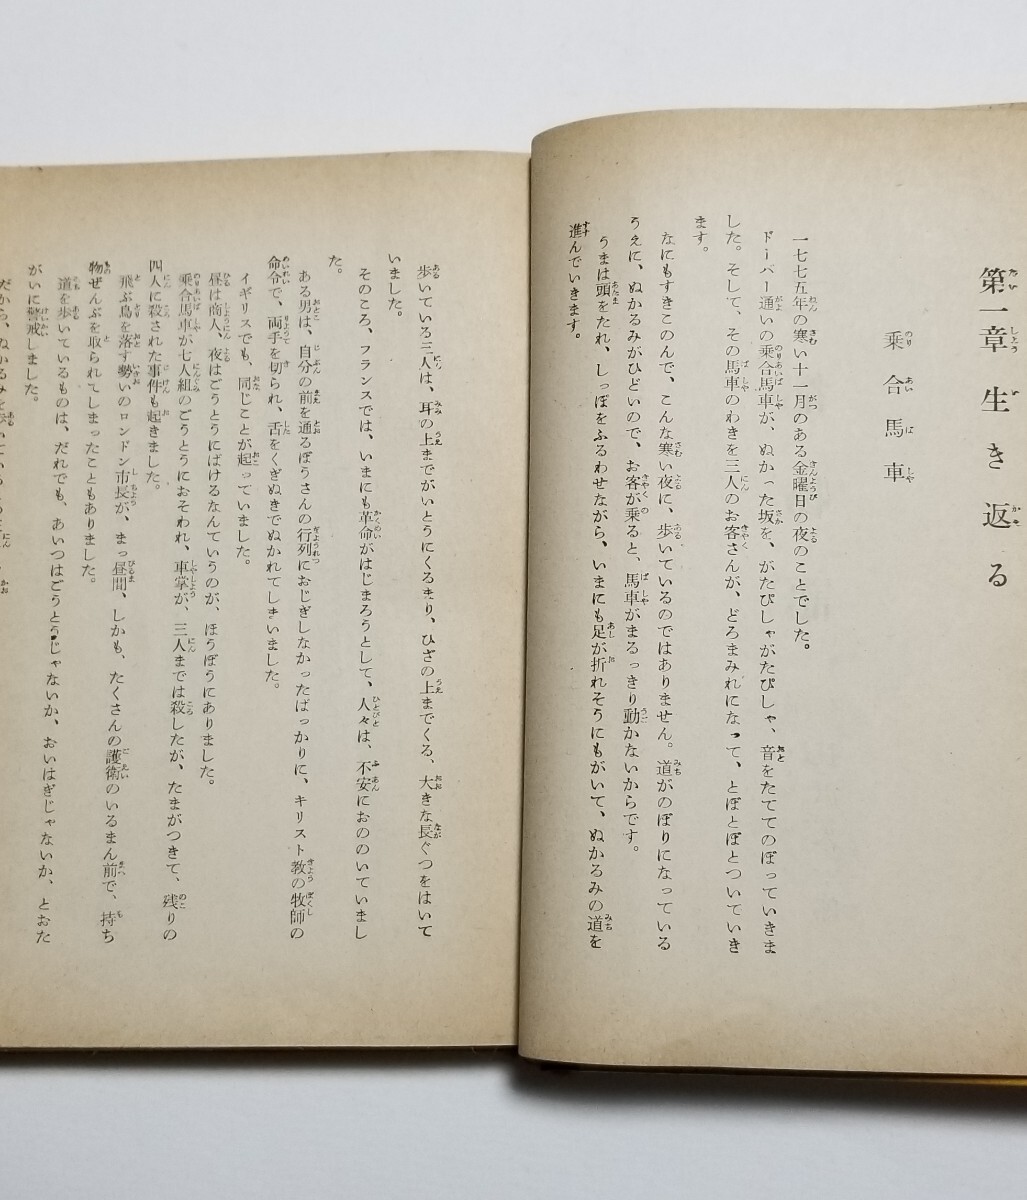 第一章　生き返る
乗合馬車
一七七五年の寒い十一月のある金曜日の夜のことでした。
ドーバー通いの乗合馬車が、ぬかった坂を、がたぴしゃがたぴしゃ、音をたててのぼっていきま
した。そして、その馬車のわきを三人のお客さんが、どろまみれになって、とぼとぼとついていき
ます。
なにもすきこのんで、こんな寒い夜に、歩いているのではありません。道がのぼりになっている
うえに、ぬかるみがひどいので、お客が乗ると、馬車がまるっきり動かないからです。
うまは頭をたれ、しっぽをふるわせながら、いまにも足が折れそうにもがいて、ぬかるみの道を
進んでいきます。
歩いている三人は、耳の上までがいとうにくるまり、ひざの上までくる、大きな長ぐつをはいて
いました。
そのころ、フランスでは、いまにも革命がはじまろうとして、人々は、不安におののいていまし
た。
ある男は、自分の前を通るぼうさんの行列におじぎしなかったばっかりに、キリスト教の牧師の
命令で、両手を切られ、舌をくぎぬきでぬかれてしまいました。
イギリスでも、同じことが起っていました。
昼は商人、夜はごうとうにばけるなんていうのが、ほうぼうにありました。
乗合馬車が七人組のごうとうにおそわれ、車掌が、三人までは殺したが、たまがつきて、残りの
四人に殺された事件も起きました。
飛ぶ鳥を落す勢いのロンドン市長が、まっ昼間、しかも、たくさんの護衛のいるまん前で、持ち
物ぜんぶを取られてしまったこともありました。
道を歩いているものは、だれでも、あいつはごうとうじゃないか、おいはぎじゃないか、とおた
がいに警戒しました。
だから、ぬかるみを